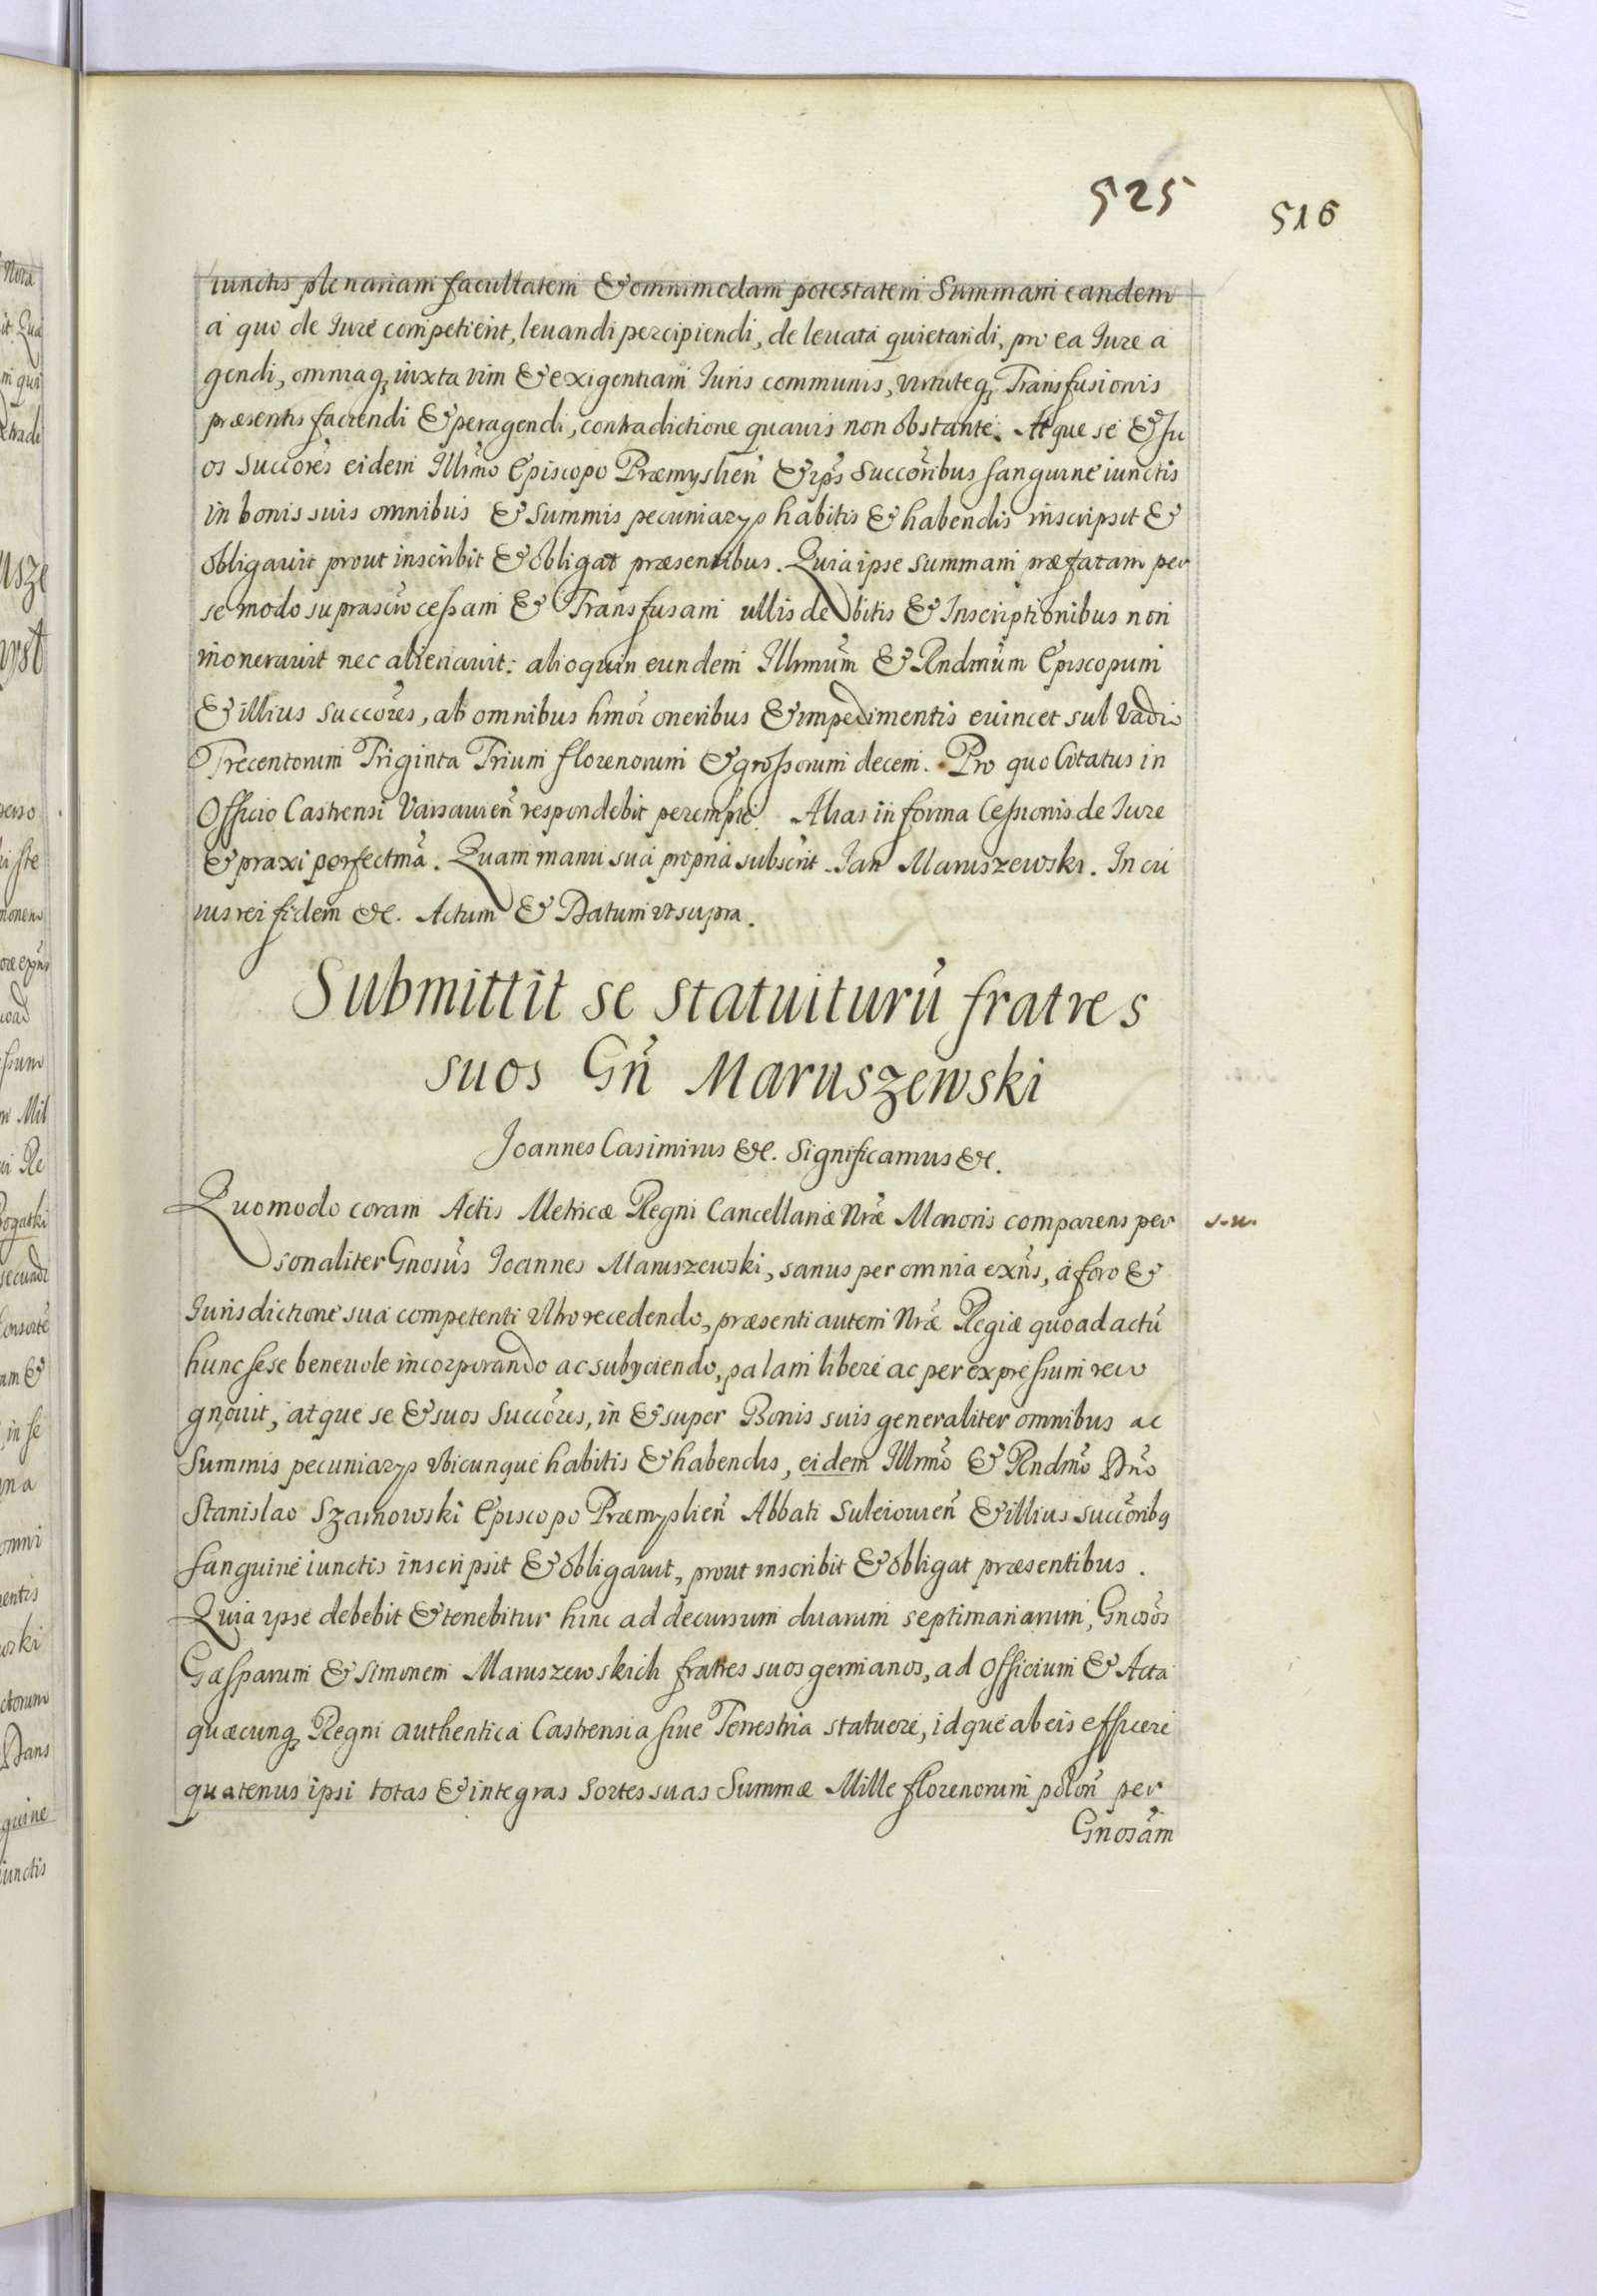 525
516
iunctis plenariam facultatem & omnimodam potestatem Summam eandem
a quo de Iure competierit, leuandi percipiendi, de leuata quietandi, pro ea Iure a
gendi, omniaq, iuxta vim & exigentiam Iuris communis, virtuteq, Transfusionis
præsentis faciendi & peragendi, contradictione quauis non obstante. Atque se & su
os succores eidem Illrmo Episcopo Præmyslien & ips succoribus sanguine iunctis
in bonis suis omnibus & summis pecuniarys habitis & habendis inscripsit &
obligauit prout inscribit & obligat præsentibus. Quia ipse summam præfatam per
se modo suprascro cessam & Transfusam ullis debitis & Inscriptionibus non
inonerauit nec alienauit: alioquin eundem Illrmum & Rndmum Episcopum
& illius succores, ab omnibus hmoi oneribus & impedimentis euincet sub vadio
Trecentorum Triginta Trium florenorum & grossorum decem. Pro quo Citatus in
Officio Castrensi Varsauien respondebit perempte. Alias in forma Cessionis de Iure
& praxi perfectma. Quam manu sua propria subscrit. Jan Maruszewski. In cu
ius rei fidem &c. Actum & Datum ut supra.
Submittit se statuiturū fratres
suos Gn̄ Maruszewski
Joannes Casimirus &c. Significamus &c.
Quomodo coram Actis Metricæ Regni Cancellariæ Nræ Maioris comparens per
sonaliter Gnosus Joannes Maruszewski, sanus per omnia exns, a foro &
Iurisdictione sua competenti Vltro recedendo, præsenti autem Nræ Regiæ quo ad actū
hunc sese beneuole incorporando ac subyciendo, palam libere ac per expressum reco
gnouit, atque se & suos Succores, in & super Bonis suis generaliter omnibus ac
Summis pecuniarys vbicunque habitis & habendis, eidem Illrmo & Rndmo Dno
Stanislao Szarnowski Episcopo Præmyslien Abbati Suleiouien & illius succoribq
sanguine iunctis inscripsit & obligauit, prout inscribit & obligat præsentibus.
Quia ipse debebit & tenebitur hinc ad decursum duarum septimanarum, Gnosos
Gasparum & Simonem Maruszewskich fratres suos germanos, ad Officium & Acta
quæcunq, Regni authentica Castrensia siue Terrestria statuere, idque ab eis efficere
quatenus ipsi totas & integras sortes suas Summæ Mille florenorum polon per
Gnosam